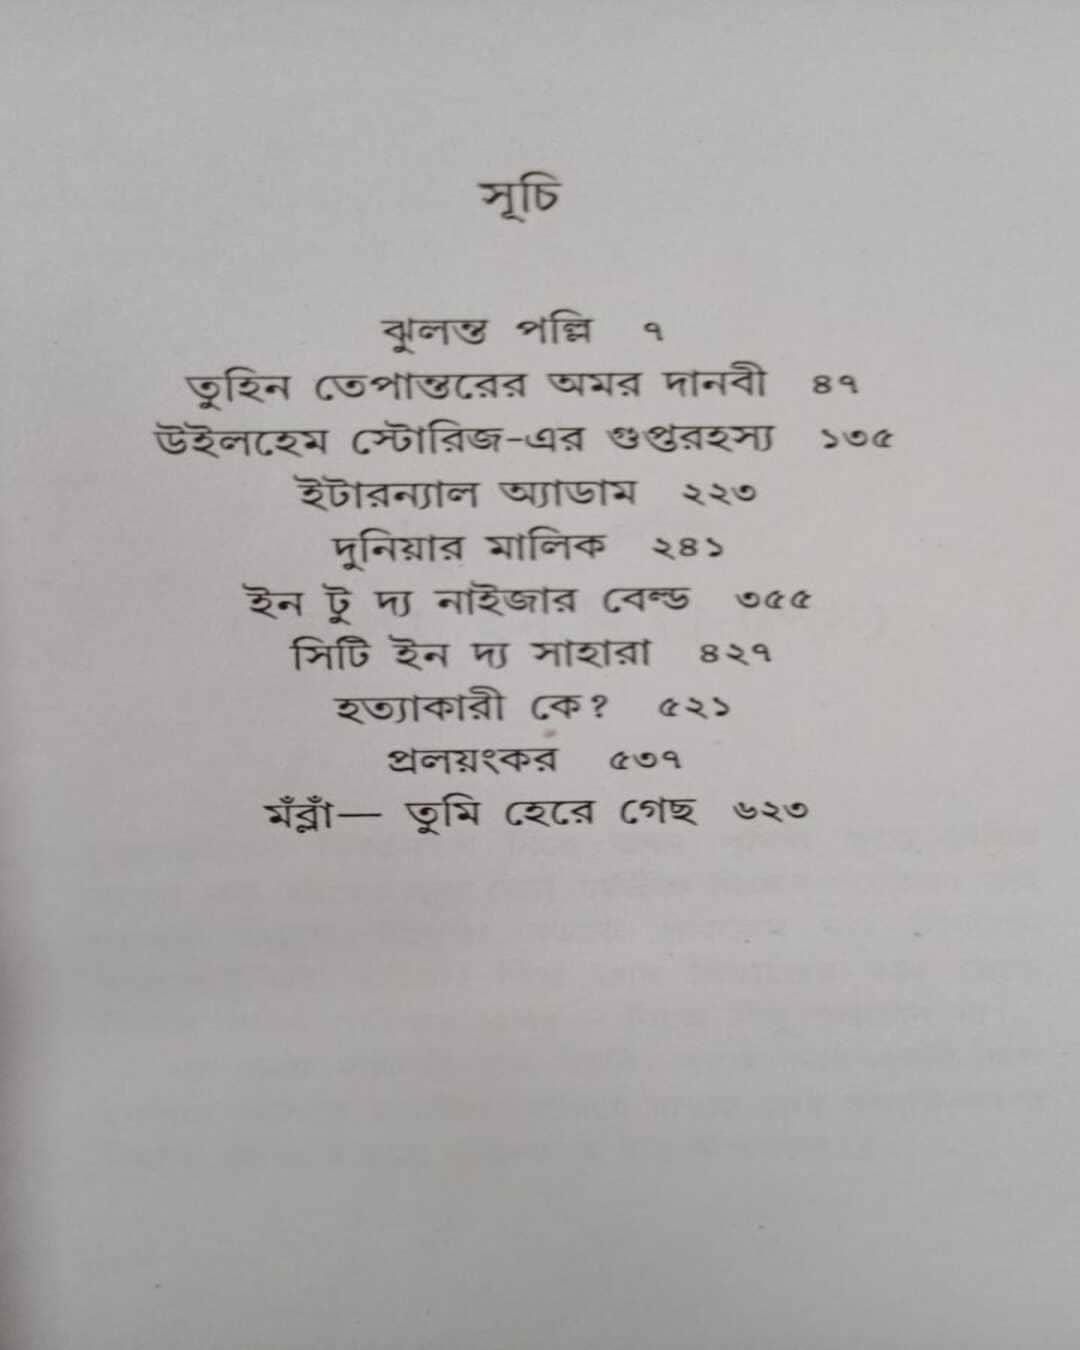 সূচি
ঝুলন্ত পল্লি ৭
তুহিন তেপান্তরের অমর দানবী ৪৭
উইলহেম স্টোরিজ-এর গুপ্তরহস্য ১৩৫
ইটারন্যাল অ্যাডাম ২২৩
দুনিয়ার মালিক ২৪১
ইন টু দ্য নাইজার বেল্ড ৩৫৫
সিটি ইন দ্য সাহারা ৪২৭
হত্যাকারী কে? ৫২১
প্রলয়ংকর ৫৩৭
মঁব্লাঁ— তুমি হেরে গেছ ৬২৩